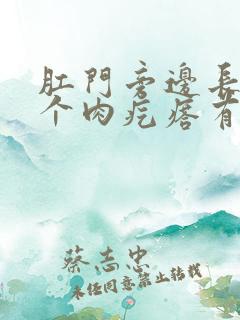 肛門旁邊長
个肉疙瘩有
蔡志忠
未经同意禁止转载